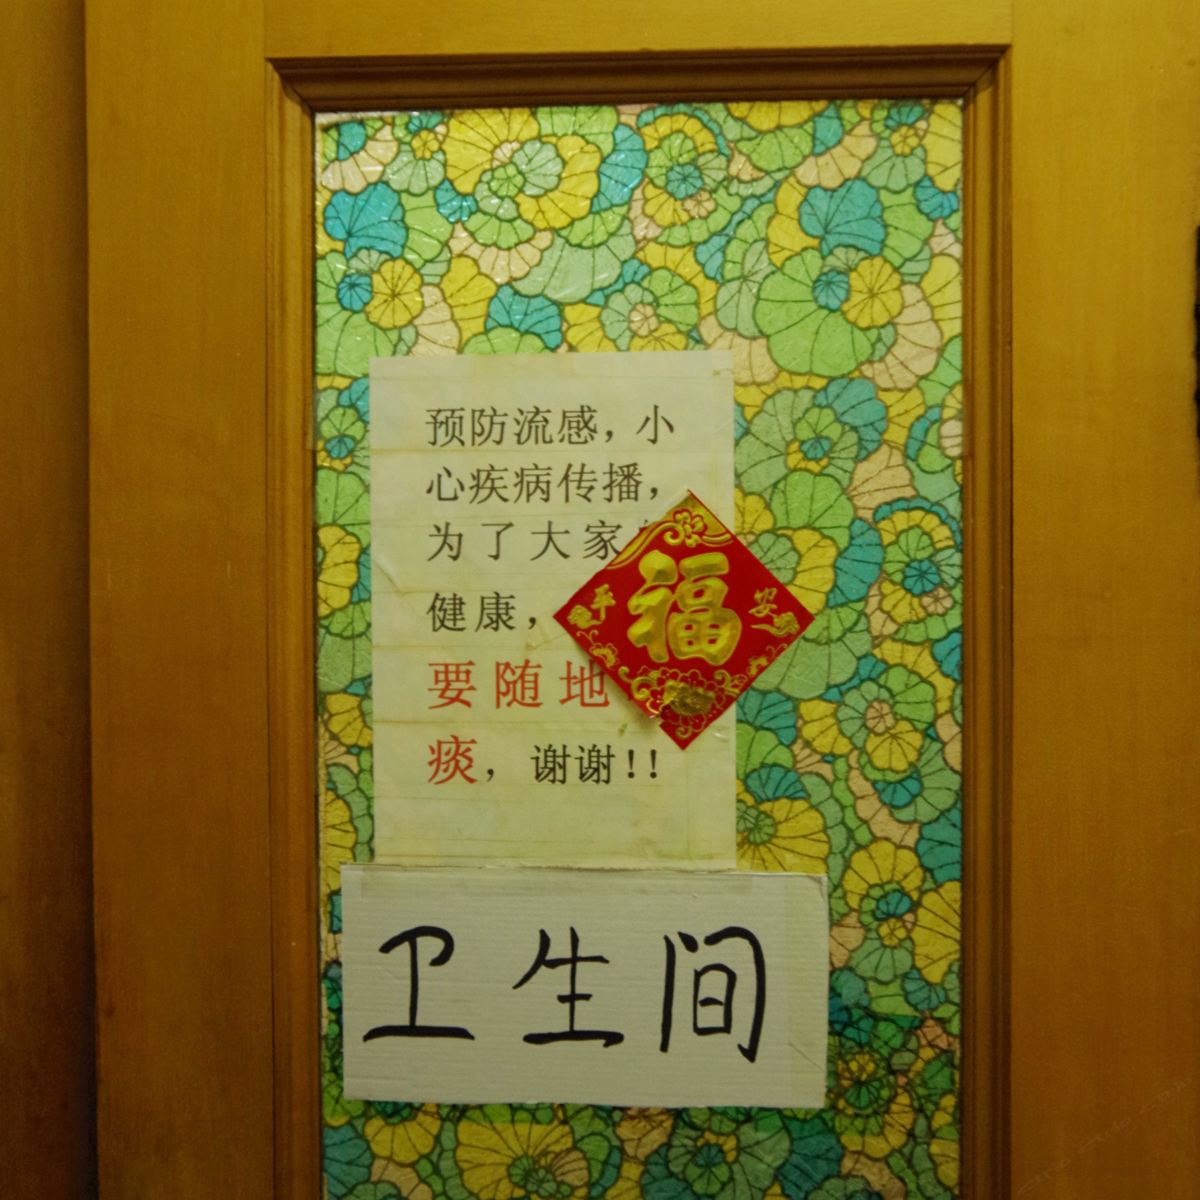 预防流感，小
心疾病传播，
为了大家
健康，
要随地
痰，谢谢！！
福
平
安
卫生间